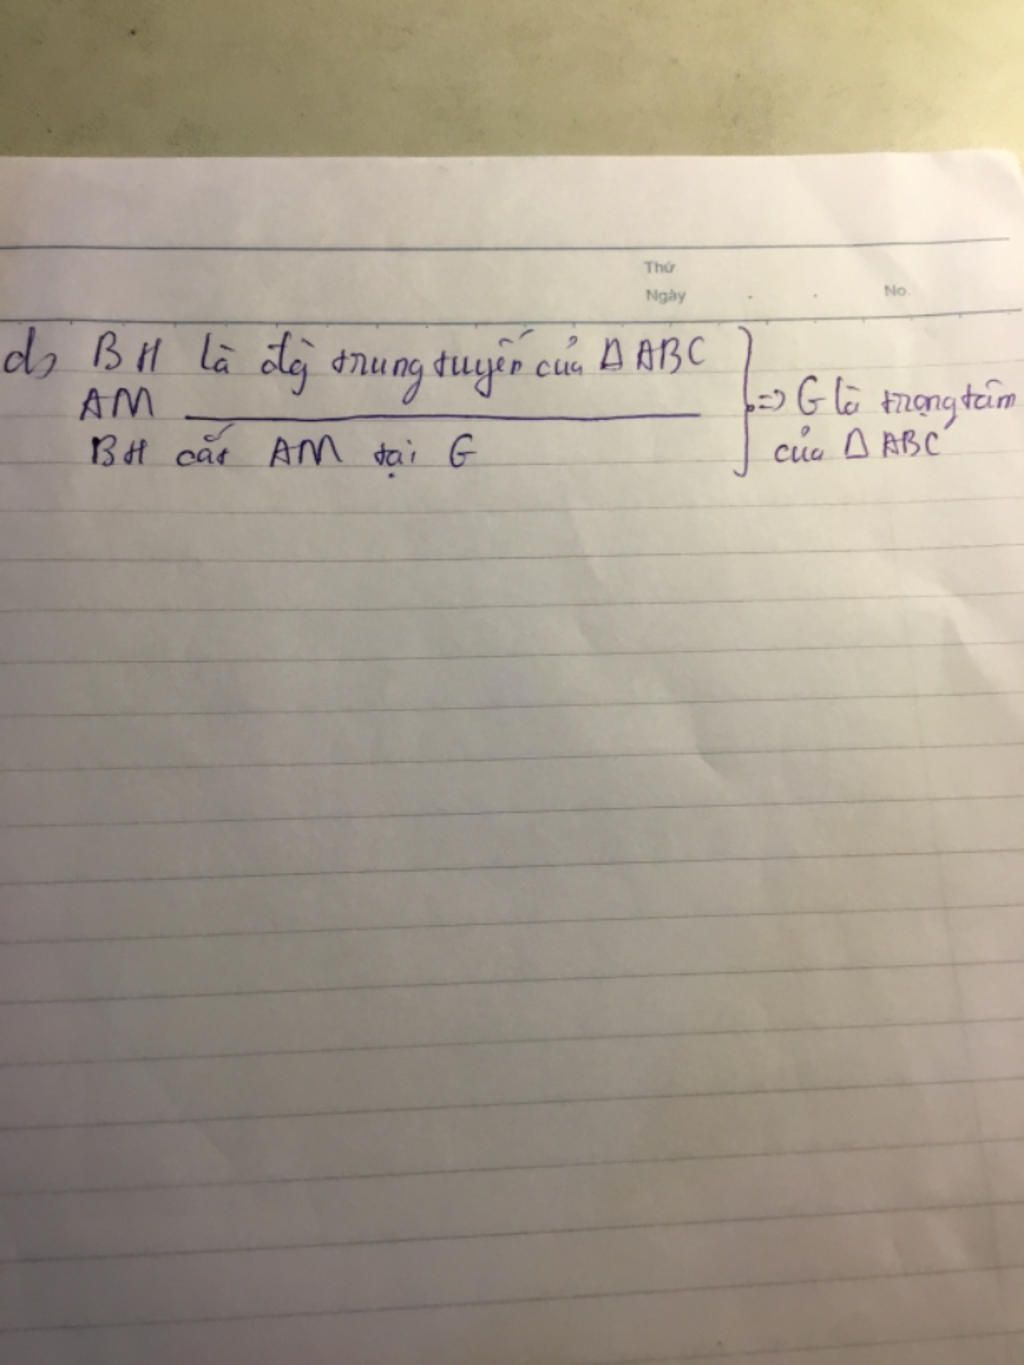 Thứ
Ngày . . No.
d, BH là đg trung tuyến của Δ ABC
AM ________
BH cắt AM tại G
=> G là trọng tâm
của Δ ABC